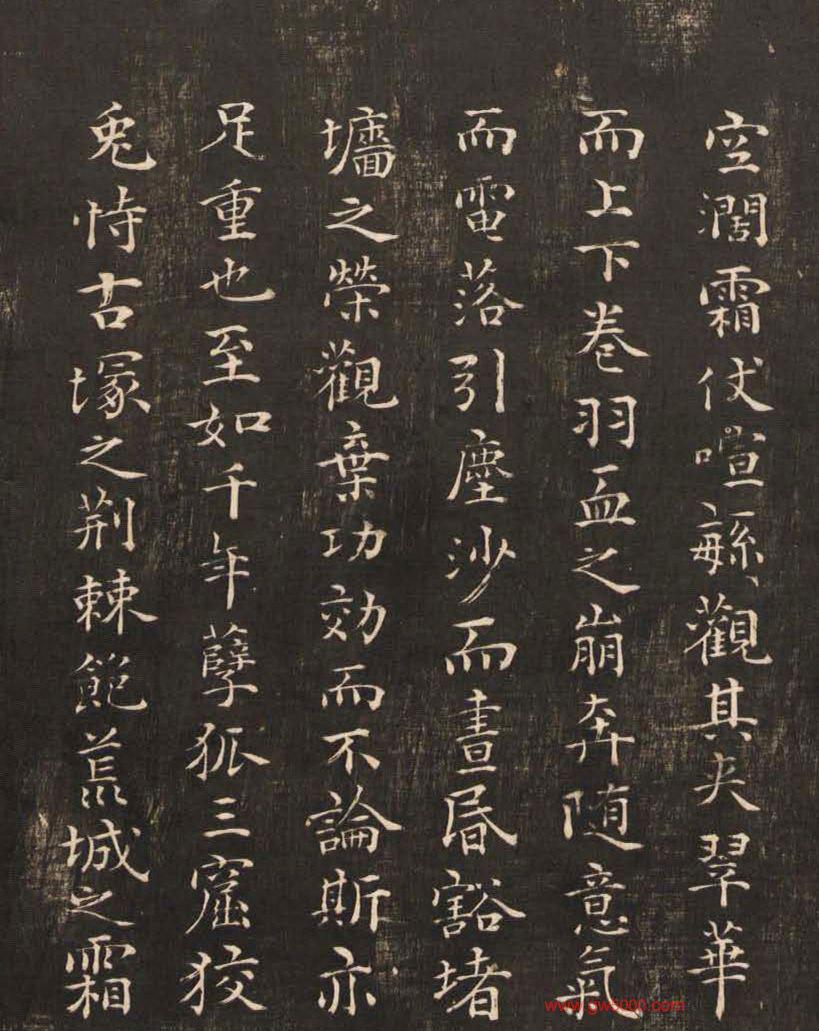 空濶霜仗喧繁觀其夹翠華
而上下卷羽血之崩奔随意氣
而電落引塵沙而晝昏豁堵
墻之榮觀棄功効而不論斯亦
足重也至如千年孽狐三窟狡
兎恃古塚之荆棘飽荒城之霜
www.gw5000.com